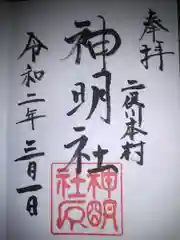 奉拝
二俣川本村
神明社
令和二年三月一日
神明
社宗